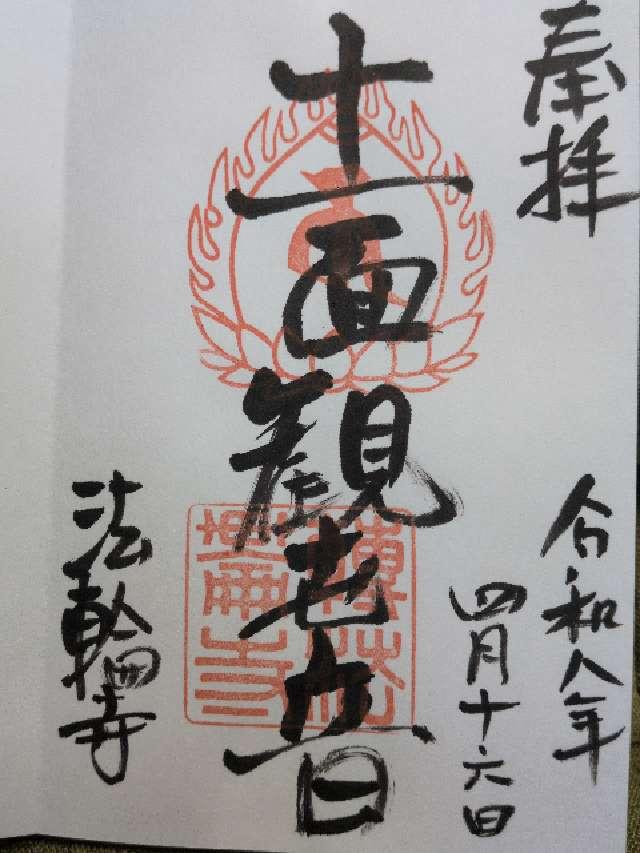 奉拝
令和八年
四月十六日
十一面観世音
法輪寺